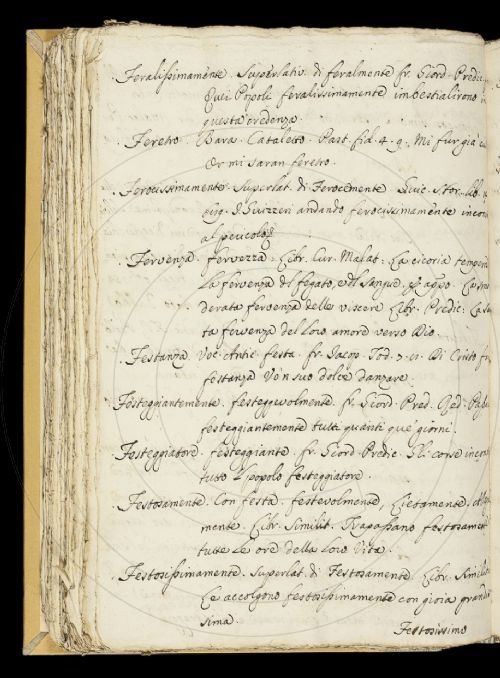 Feralissimamente. Superlativ. di feralmente fr. Giord. Predic.
Quei Popoli feralissimamente imbestialirono in
questa credenza
Feretro. Bara. Cataletto. Past. fid. 4. 9. Mi fur già
Or mi saran feretro.
Ferocissimamente. Superlat. di Ferocemente Guic. Stor. lib.
Svizzeri andando ferocissimamente incon
al pericolo
Fervenza. fervezza. Libr. Cur. Malat. La cicoria tempera
La fervenza del fegato, e del sangue. E appo. La
derata fervenza delle viscere Libr. Predic. La
ta fervenza del loro amore verso Dio.
Festanza. Voc. Antic. festa. fr. Jacop. Tod. Di Cristo
festanza Và'n suo dolce danzare.
Festeggiantemente. festeggevolmente. fr. Giord. Pred. Red.
festeggiantemente tutti quanti que' giorni.
Festeggiatore. festeggiante. fr. Giord. Predic. Gli corse incon
tutto il popolo festeggiatore.
Festosamente. Con festa. festevolmente, Lietamente,
mente. Libr. Similit. Trapassano festosamen
tutte le ore della loro Vita.
Festosissimamente. Superlat. di Festosamente. Libr. Simil
Le accolgono festosissimamente con gioia grandis
sima.
Festosissimo